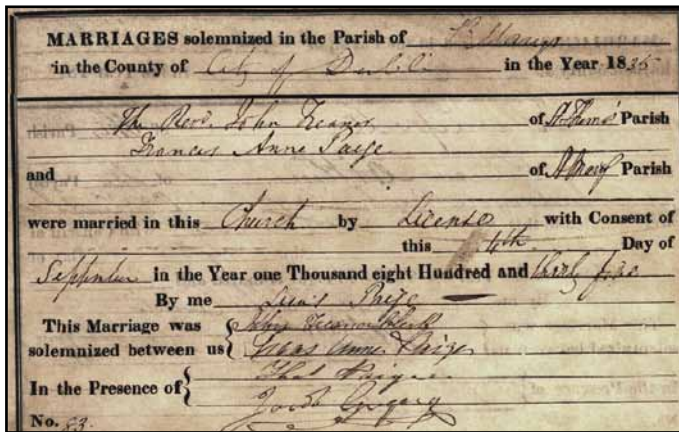 MARRIAGES solemnized in the Parish of St Marys
in the County of City of Dublin in the Year 1835
The Revd. John of St Thomas Parish
Frances Anne Paige
and of St Marys Parish
were married in this Church by License with Consent of
this Day of
September in the Year one Thousand eight Hundred and thirty five
By me Paige
This Marriage was { John
solemnized between us { Anne Paige
In the Presence of { Thos Paige
Jacob Gregory
No. 83.